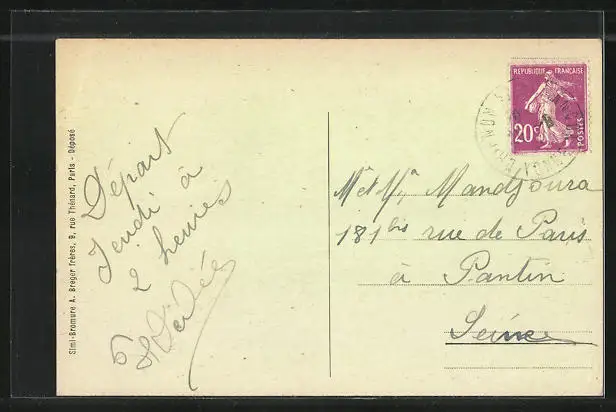 Simi-Bromure A. Breger frères, 9, rue Thénard, Paris - Déposé
Départ
Jeudi à
2 heures
RÉPUBLIQUE FRANÇAISE
20c
POSTES
Mr et Me Mandjoura
181 bis rue de Paris
à Pantin
Seine